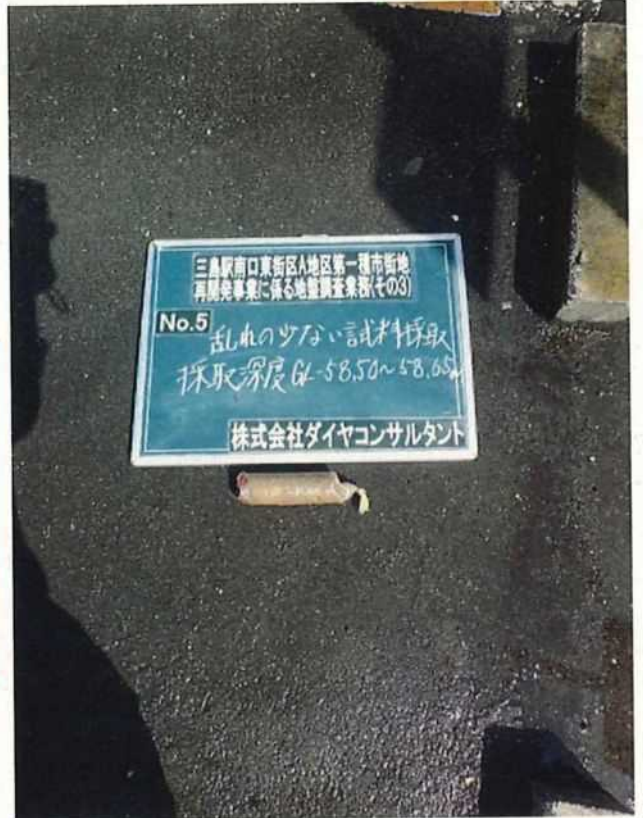 三島駅南口東街区A地区第一種市街地
再開発事業に係る地盤調査業務(その3)
No.5
乱れの少ない試料採取
採取深度GL-58.50~58.65m
株式会社ダイヤコンサルタント